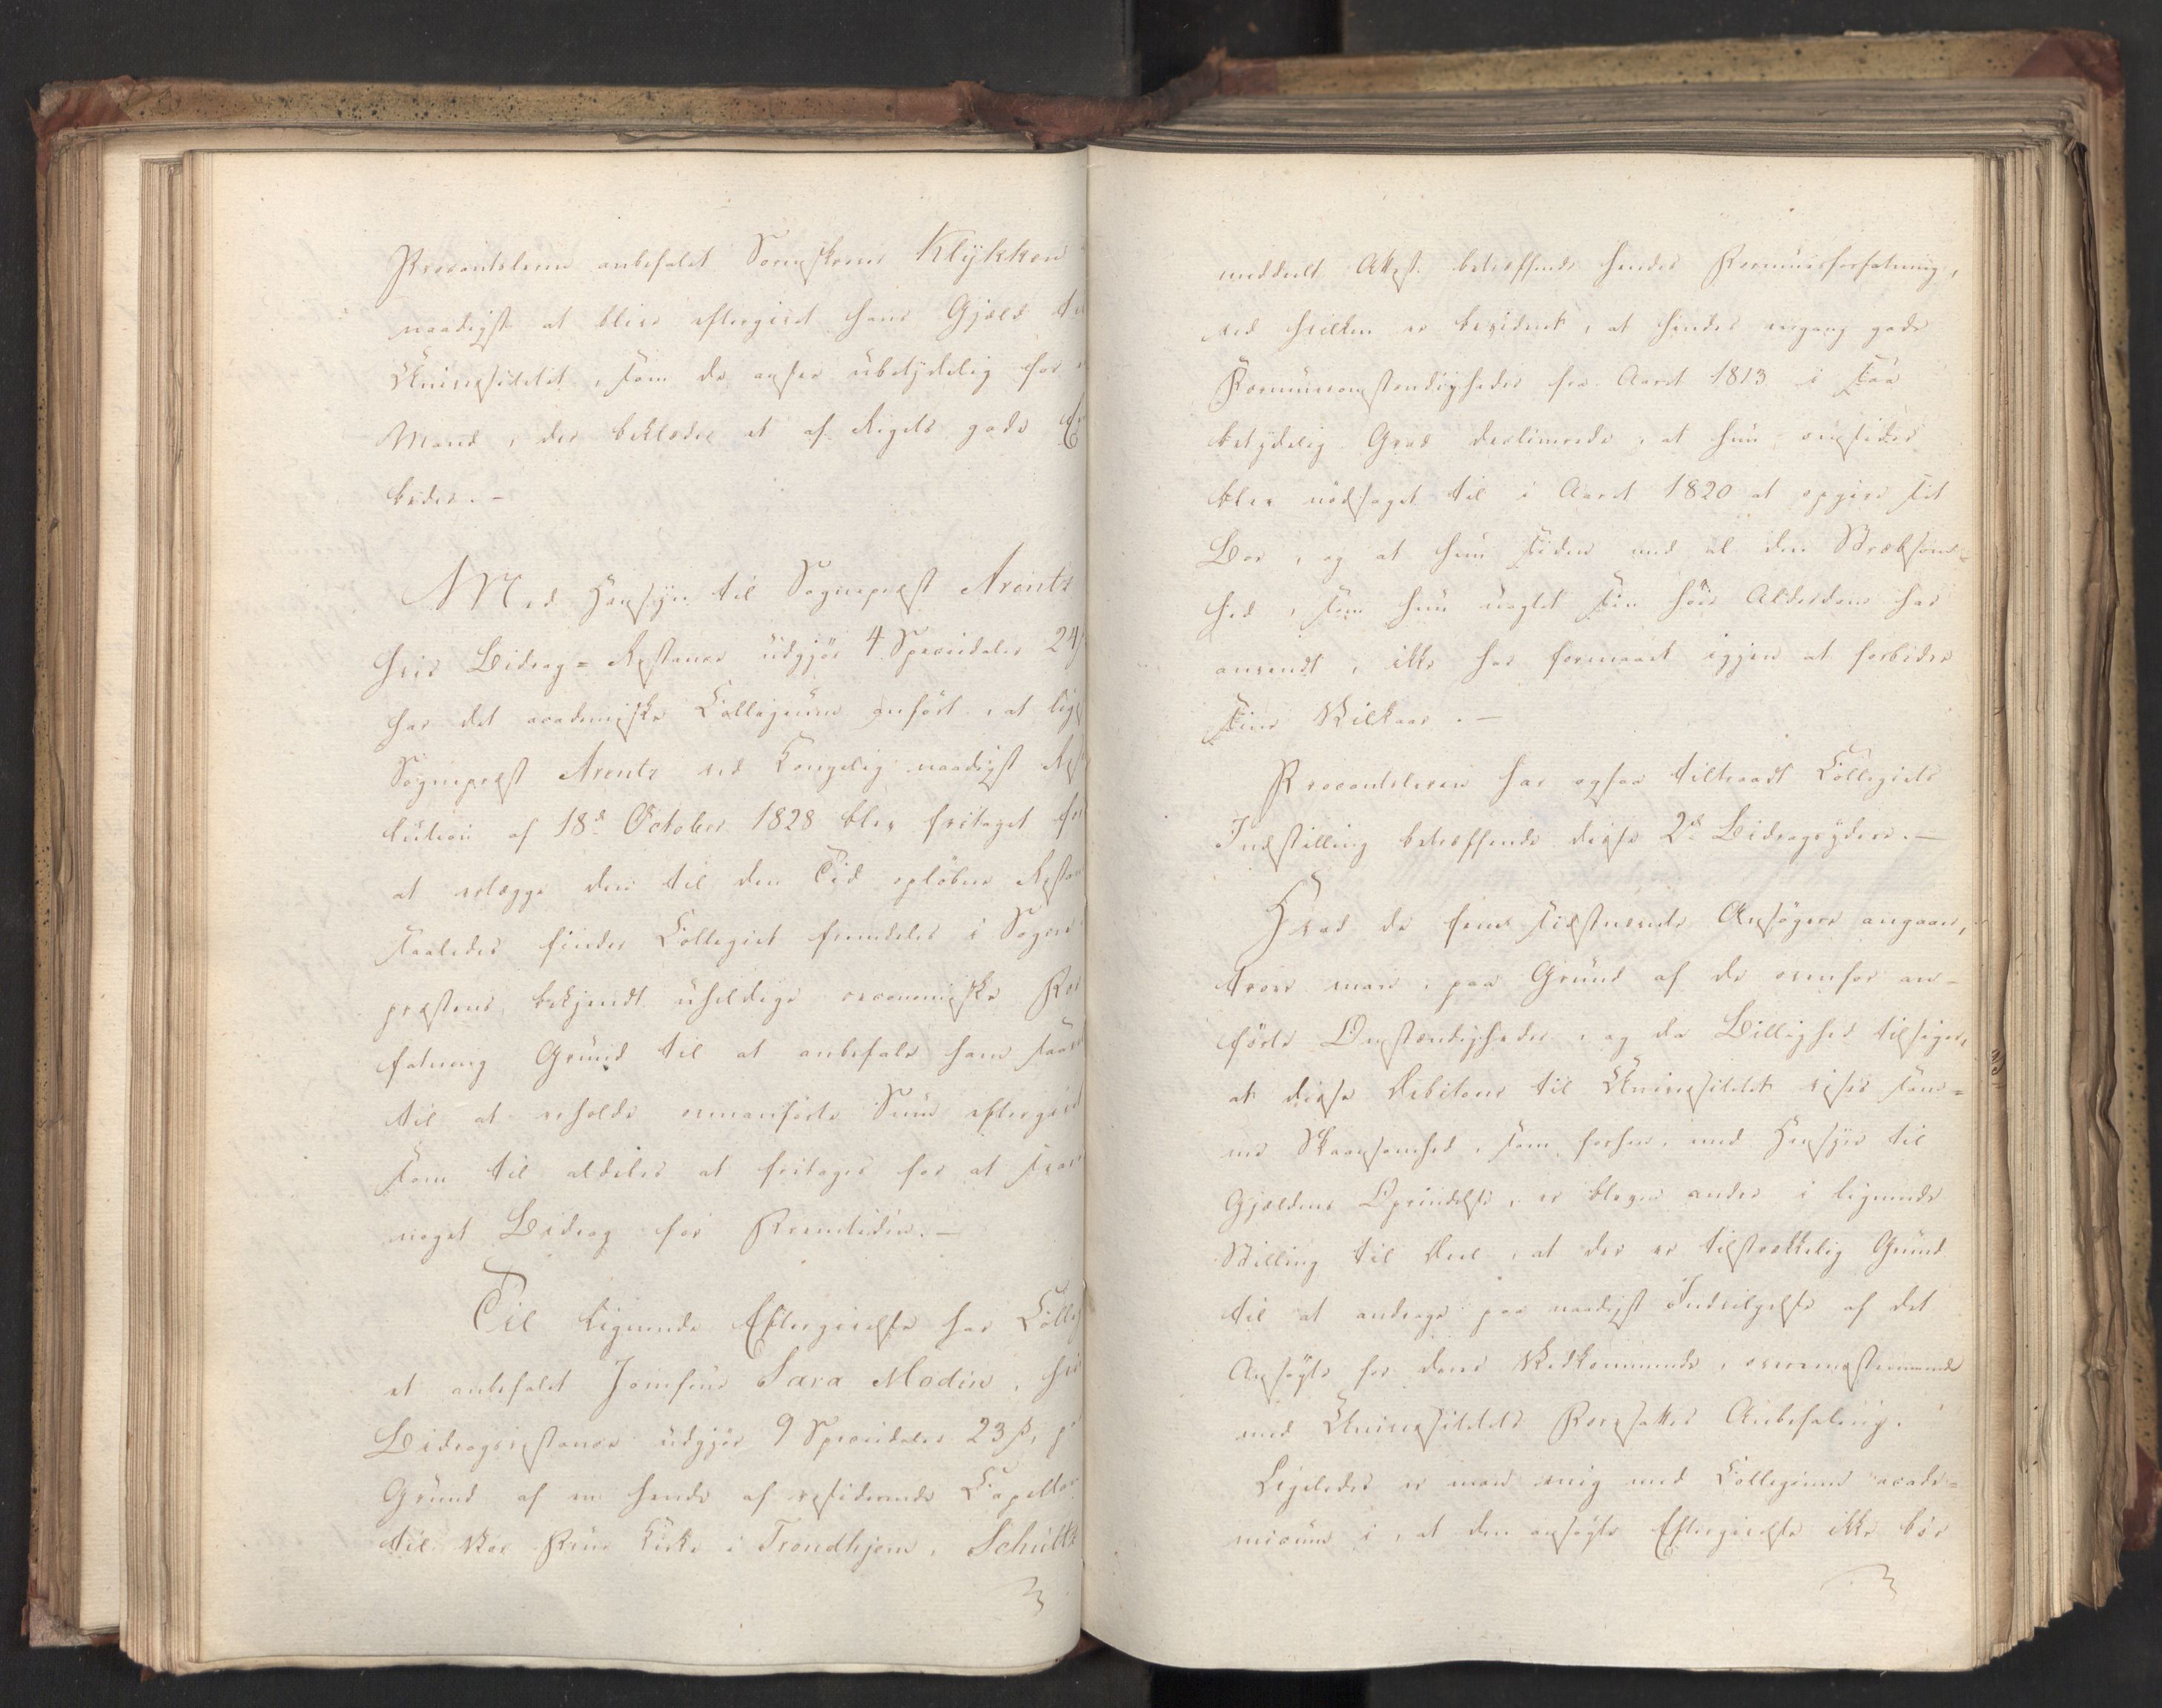 Procantsleren anbefalet Sorenskriver Klykken
naadigst at blive eftergivet hans Gjæld til
Universitetet, som de anser ubetydelig for
Mand, der beklæder et af Rigets gode Em
beder. –
Med Hensyn til Sognepræst Arentz
hvis Bidrag=Restance udgjør 4 Speciedaler 24 s
har det academiske Collegium anført, at lige
Sognepræst Arentz ved Kongelig naadigst Reso
lution af 18de October 1828 blev fritaget for
at erlægge den til den Tid opløbne Restan
saaledes finder Collegiet fremdeles i Sogne
præstens bekjendt uheldige oeconomiske For
fatning Grund til at anbefale ham saavel
til at erholde ommanførte Sum eftergivet
som til aldeles at fritages for at svare
noget Bidrag for Fremtiden. –
Til lignende Eftergivelse har Colleg
et anbefalet Jomfrue Sara Modin, hvis
Bidragsrestance udgjør 9 Speciedaler 23 s, p
Grund af en hende af residerende Capellan
til Vor Frue Kirke i Trondhjem, Schult
meddeelt Attest betræffende hendes Formuesforfatning,
ved hvilken er bevidnet, at hendes engang gode
Formuesomstændigheder fra Aaret 1813 i saa
betydelig Grad declinerede, at hun omsider
blev nødsaget til i Aaret 1820 at opgive sit
Boe, og at hun siden med al den Stræbsom=
hed, som hun uagtet sin høie Alderdom har
anvendt, ikke har formaaet igjen at forbedre
sine Vilkaar. –
Procantsleren har ogsaa tiltraadt Collegiets
Indstilling betræffende disse 2de Bidragsydere. –
Hvad de fem sidstnævnte Ansøgere angaaer,
troer man, paa Grund af de ovenfor an-
førte Omstændigheder, og da Billighed tilsiger,
at disse Debitorer til Universitetet vises sam=
me Skaansomhed, som forhen, med Hensyn til
Gjældens Oprindelse, er bleven andre i lignende
Stilling til Deel, at der er tilstrækkelig Grund
til at andrage paa naadigst Indvilgelse af det
Ansøgte for deres Vedkommende, overensstemmende
med Universitetets Foresattes Anbefaling.
Ligeledes er man enig med Collegium acade=
micum i, at den ansøgte Eftergivelse ikke bør